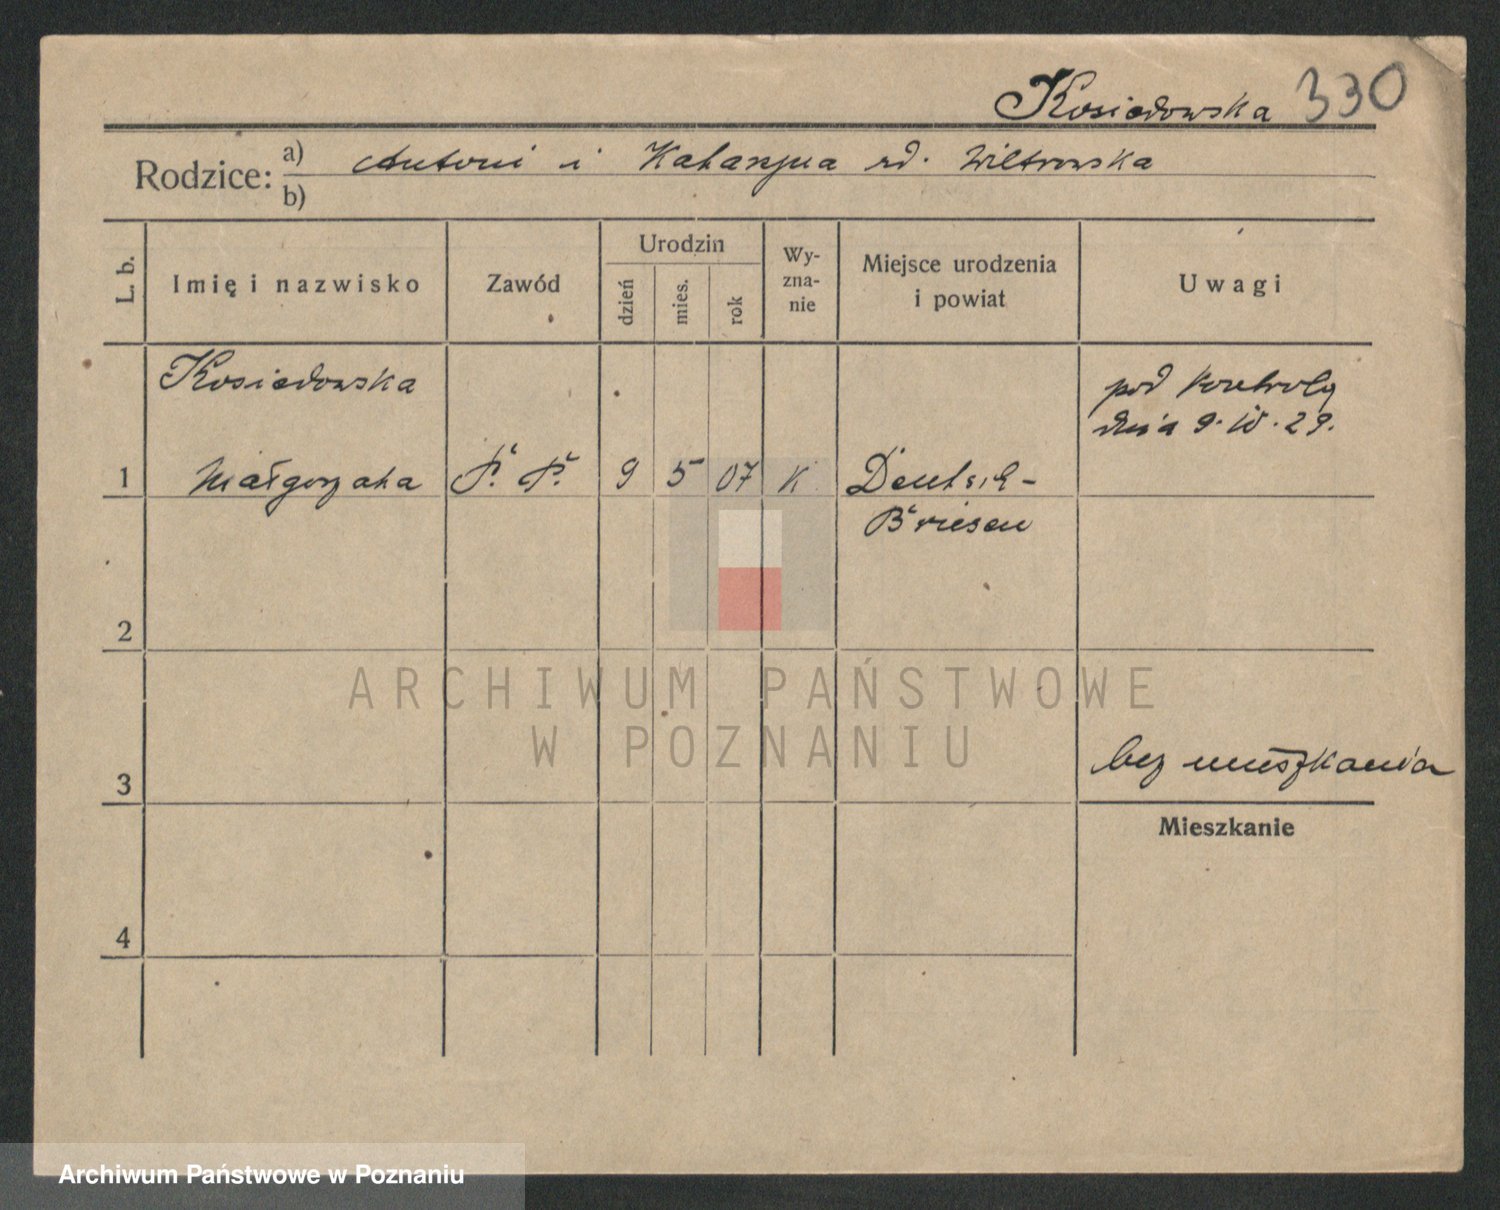 Kosiadowska 330
Rodzice: a) Antoni i Katarzyna rd. Wiltrowska
b)
L. b. Imię i nazwisko Zawód Urodzin dzień mies. rok Wy-zna-nie Miejsce urodzenia i powiat Uwagi
Kosiadowska pod kontrolą
dnia 9. IV. 29.
1 Małgorzata P. P. 9 5 07 K Deutsch-
Briesen
2
ARCHIWUM PAŃSTWOWE
W POZNANIU
3 bez mieszkania
Mieszkanie
4
Archiwum Państwowe w Poznaniu